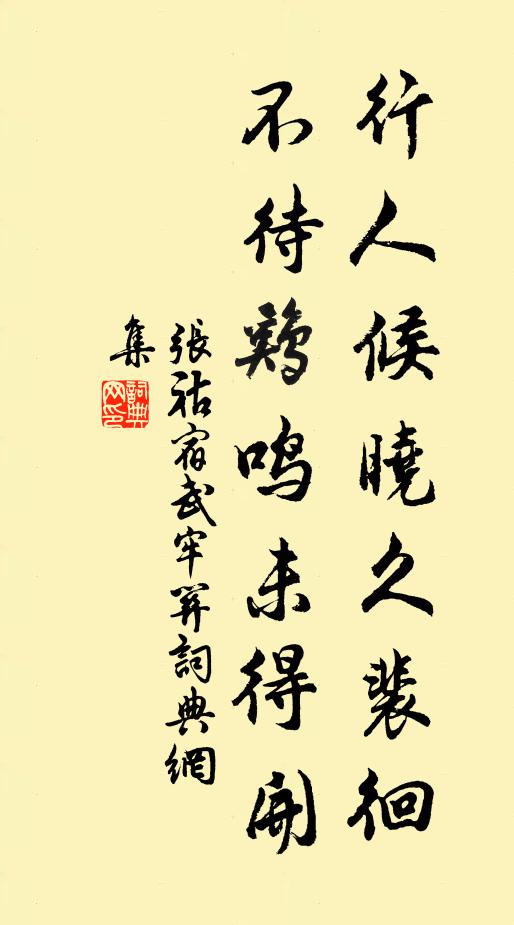 行人候曉久裴徊
不待鷄鳴未得開
張祜宿武牢關詞典網
集
詞典網印